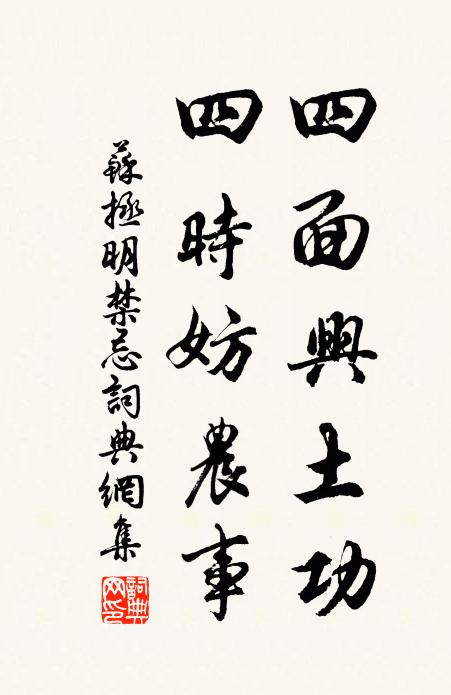 四面興土功
四時妨農事
蘇拯明禁忌詞典網集
詞典網印